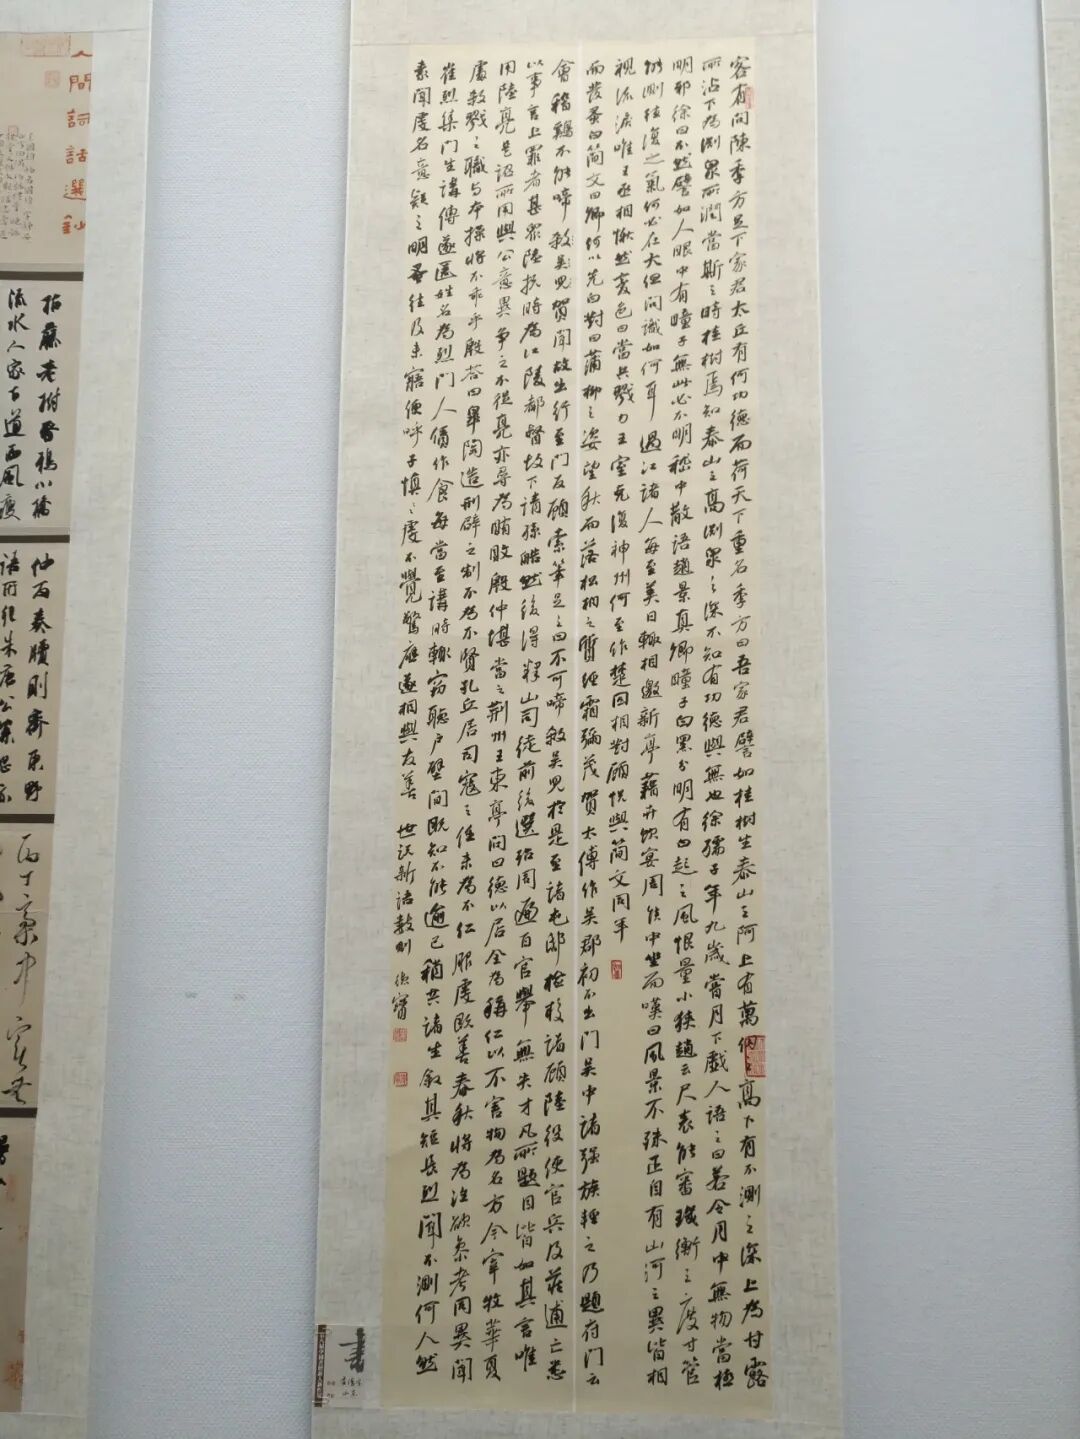 客有問陳季方足下家君太丘有何功德而荷天下重名季方曰吾家君譬如桂樹生泰山之阿上有萬仞之高下有不測之深上為甘露
所沾下為淵泉所潤當斯之時桂樹焉知泰山之高淵泉之深不知有功德與無也徐孺子年九歲嘗月下戲人語之曰若令月中無物當極
明邪徐曰不然譬如人眼中有瞳子無此必不明嵇中散語趙景真卿瞳子白黑分明有白起之風恨量小狹趙云尺表能審璣衡之度寸管
能測往復之氣何必在大但問識如何耳 過江諸人每至美日輒相邀新亭藉卉飲宴周侯中坐而嘆曰風景不殊正自有山河之異皆相
視流淚唯王丞相愀然變色曰當共戮力王室克復神州何至作楚囚相對顧悅與簡文同年
而髮蚤白簡文曰卿何以先白對曰蒲柳之姿望秋而落松柏之質經霜彌茂賀太傅作吳郡初不出門吳中諸強族輕之乃題府門云
會稽鷄不能啼殺吳兒賀聞故出行至門反顧索筆足之曰不可啼殺吳兒於是至諸屯邸檢校諸顧陸役使官兵及藏逋亡悉
以事言上罪者甚眾陸抗時為江陵都督故下請孫皓然後得釋山司徒前後選殆周遍百官舉無失才凡所題目皆如其言唯
用陸亮是詔所用與公意異爭之不從亮亦尋為賄敗殷仲堪當之荊州王東亭問曰德以居全為稱仁以不害物為名方今宰牧華夏
處殺戮之職與本操將不乖乎殷答曰皋陶造刑辟之制不為不賢孔丘居司寇之任未為不仁服虔既善春秋將為注欲參考同異聞
崔烈集門生講傳遂匿姓名為烈門人賃作食每當至講時輒竊聽戶壁間既知不能逾己稍共諸生敘其短長烈聞不測何人然
素聞虔名意疑之明蚤往及未寤便呼子慎〻虔不覺驚應遂相與友善 世說新語數則 德寶
書
山東
人間詞話選鈔
枯藤老樹昏鴉小橋
流水人家古道西風瘦
奏牘則齊東野
語